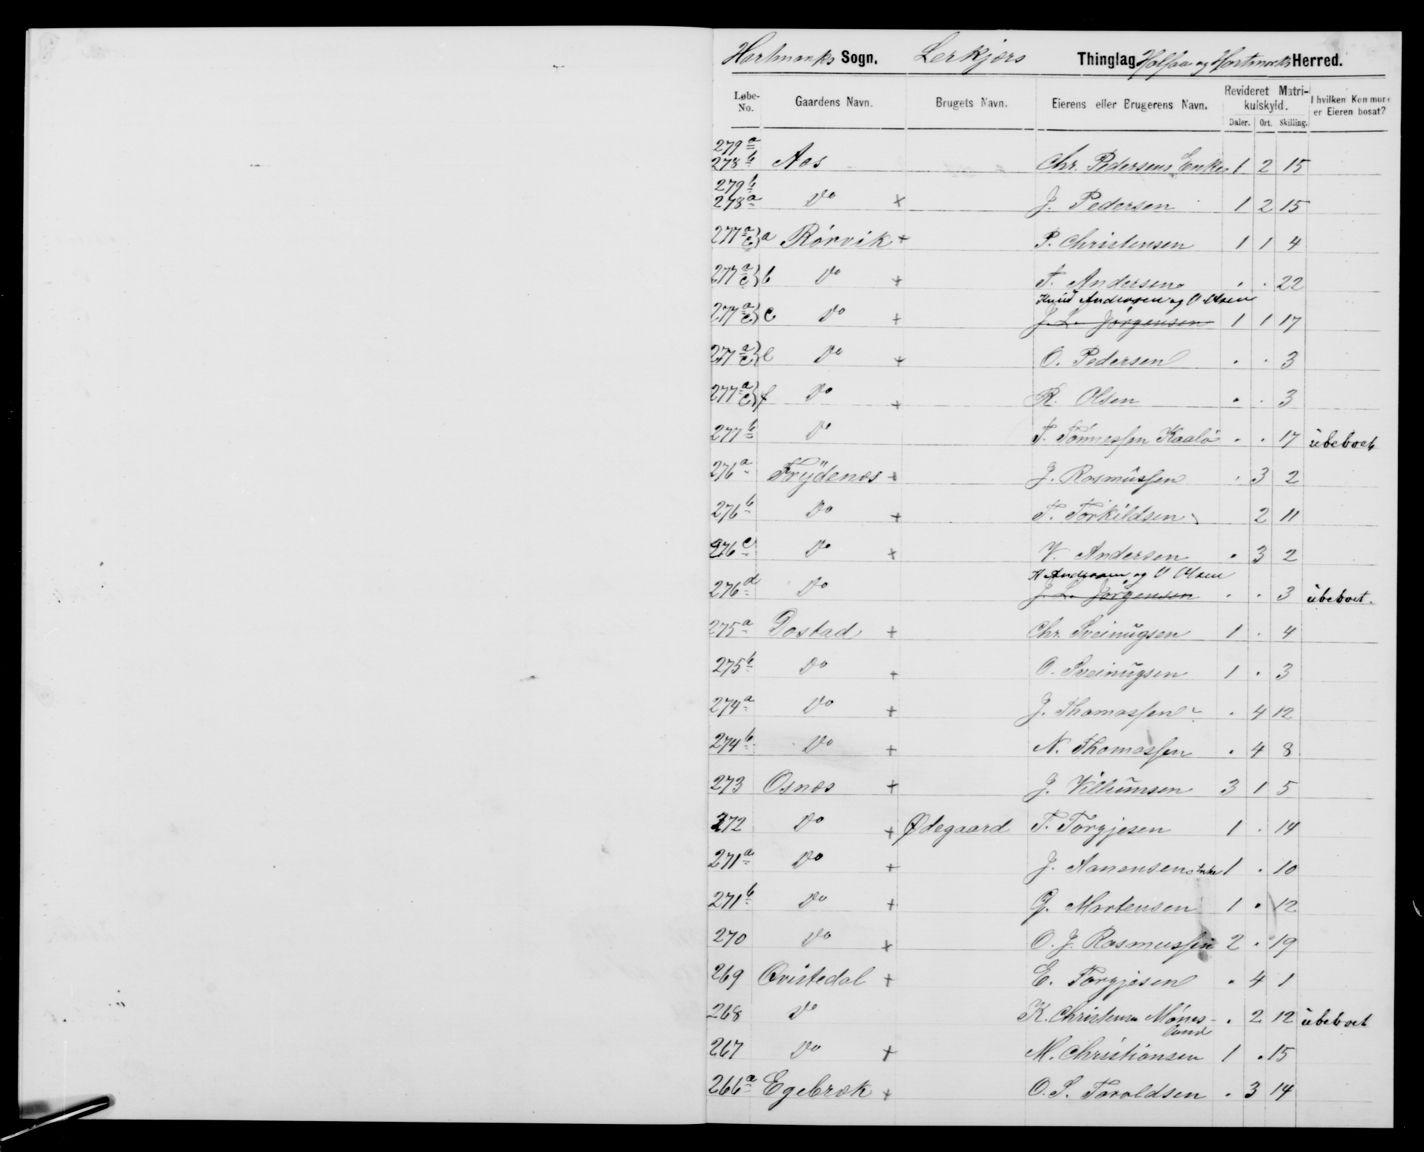 Hartmarks Sogn. Lerkjers Thinglag Halsaa og Hartmarks Herred.
Løbe-No. Gaardens Navn. Brugets Navn. Eierens eller Brugerens Navn. Revideret Matrikulskyld. Daler. Ort. Skilling. I hvilken Kommune er Eieren bosat?
279a 278b Aas Chr. Pedersens Enke 1 2 15
279b 278a Do + J. Pedersen 1 2 15
277a c} a Rørvik + P. Christensen 1 1 4
277a c} b Do + T. Andersen . . 22
Knud Andersen og O Olsen
277a c} c Do + J. L. Jørgensen 1 1 17
277a c} e Do + O. Pedersen . . 3
277a c} f Do + R. Olsen . . 3
277b Do T. Tønnessen Kaalø . . 17 ubeboet
276a Frydenæs + J. Rasmussen . 3 2
276b Do + T. Torkildsen 2 11
276c Do + V. Andersen . 3 2
K Andersen og O Olsen
276d Do J. L. Jørgensen . . 3 ubeboet.
275a Dostad + Chr. Sveinugsen 1 . 4
275b Do + O. Sveinugsen 1 . 3
274a Do + J. Thomassen . 4 12
274b Do + N. Thomassen . 4 8
273 Osnæs + J. Villumsen 3 1 5
272 Do + Ødegaard T. Torgjesen 1 . 14
271a Do + J. Aanensens Enke 1 . 10
271b Do + G. Martensen 1 . 12
270 Do + O. J. Rasmussen 2 . 19
269 Qvistedal + E. Torgjesen . 4 1
268 Do K. Christensen Mønes-
land . 2 12 ubeboet
267 Do + M. Christiansen 1 . 15
266a Egebræk + O. S. Taraldsen . 3 14